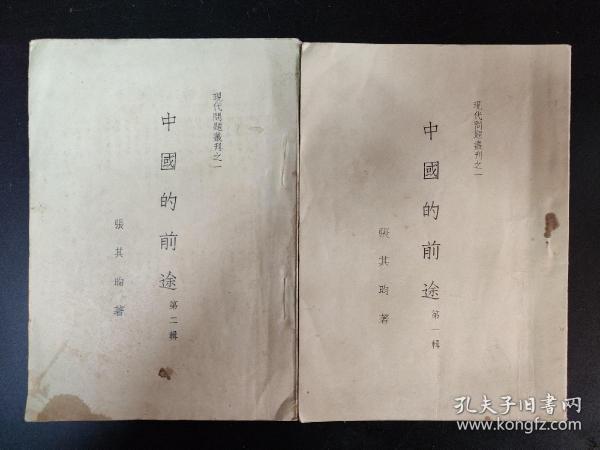 現代問題叢刊之一
中國的前途 第二輯
張其昀 著
現代問題叢刊之一
中國的前途 第一輯
張其昀 著
孔夫子旧书网
www.kongfz.com